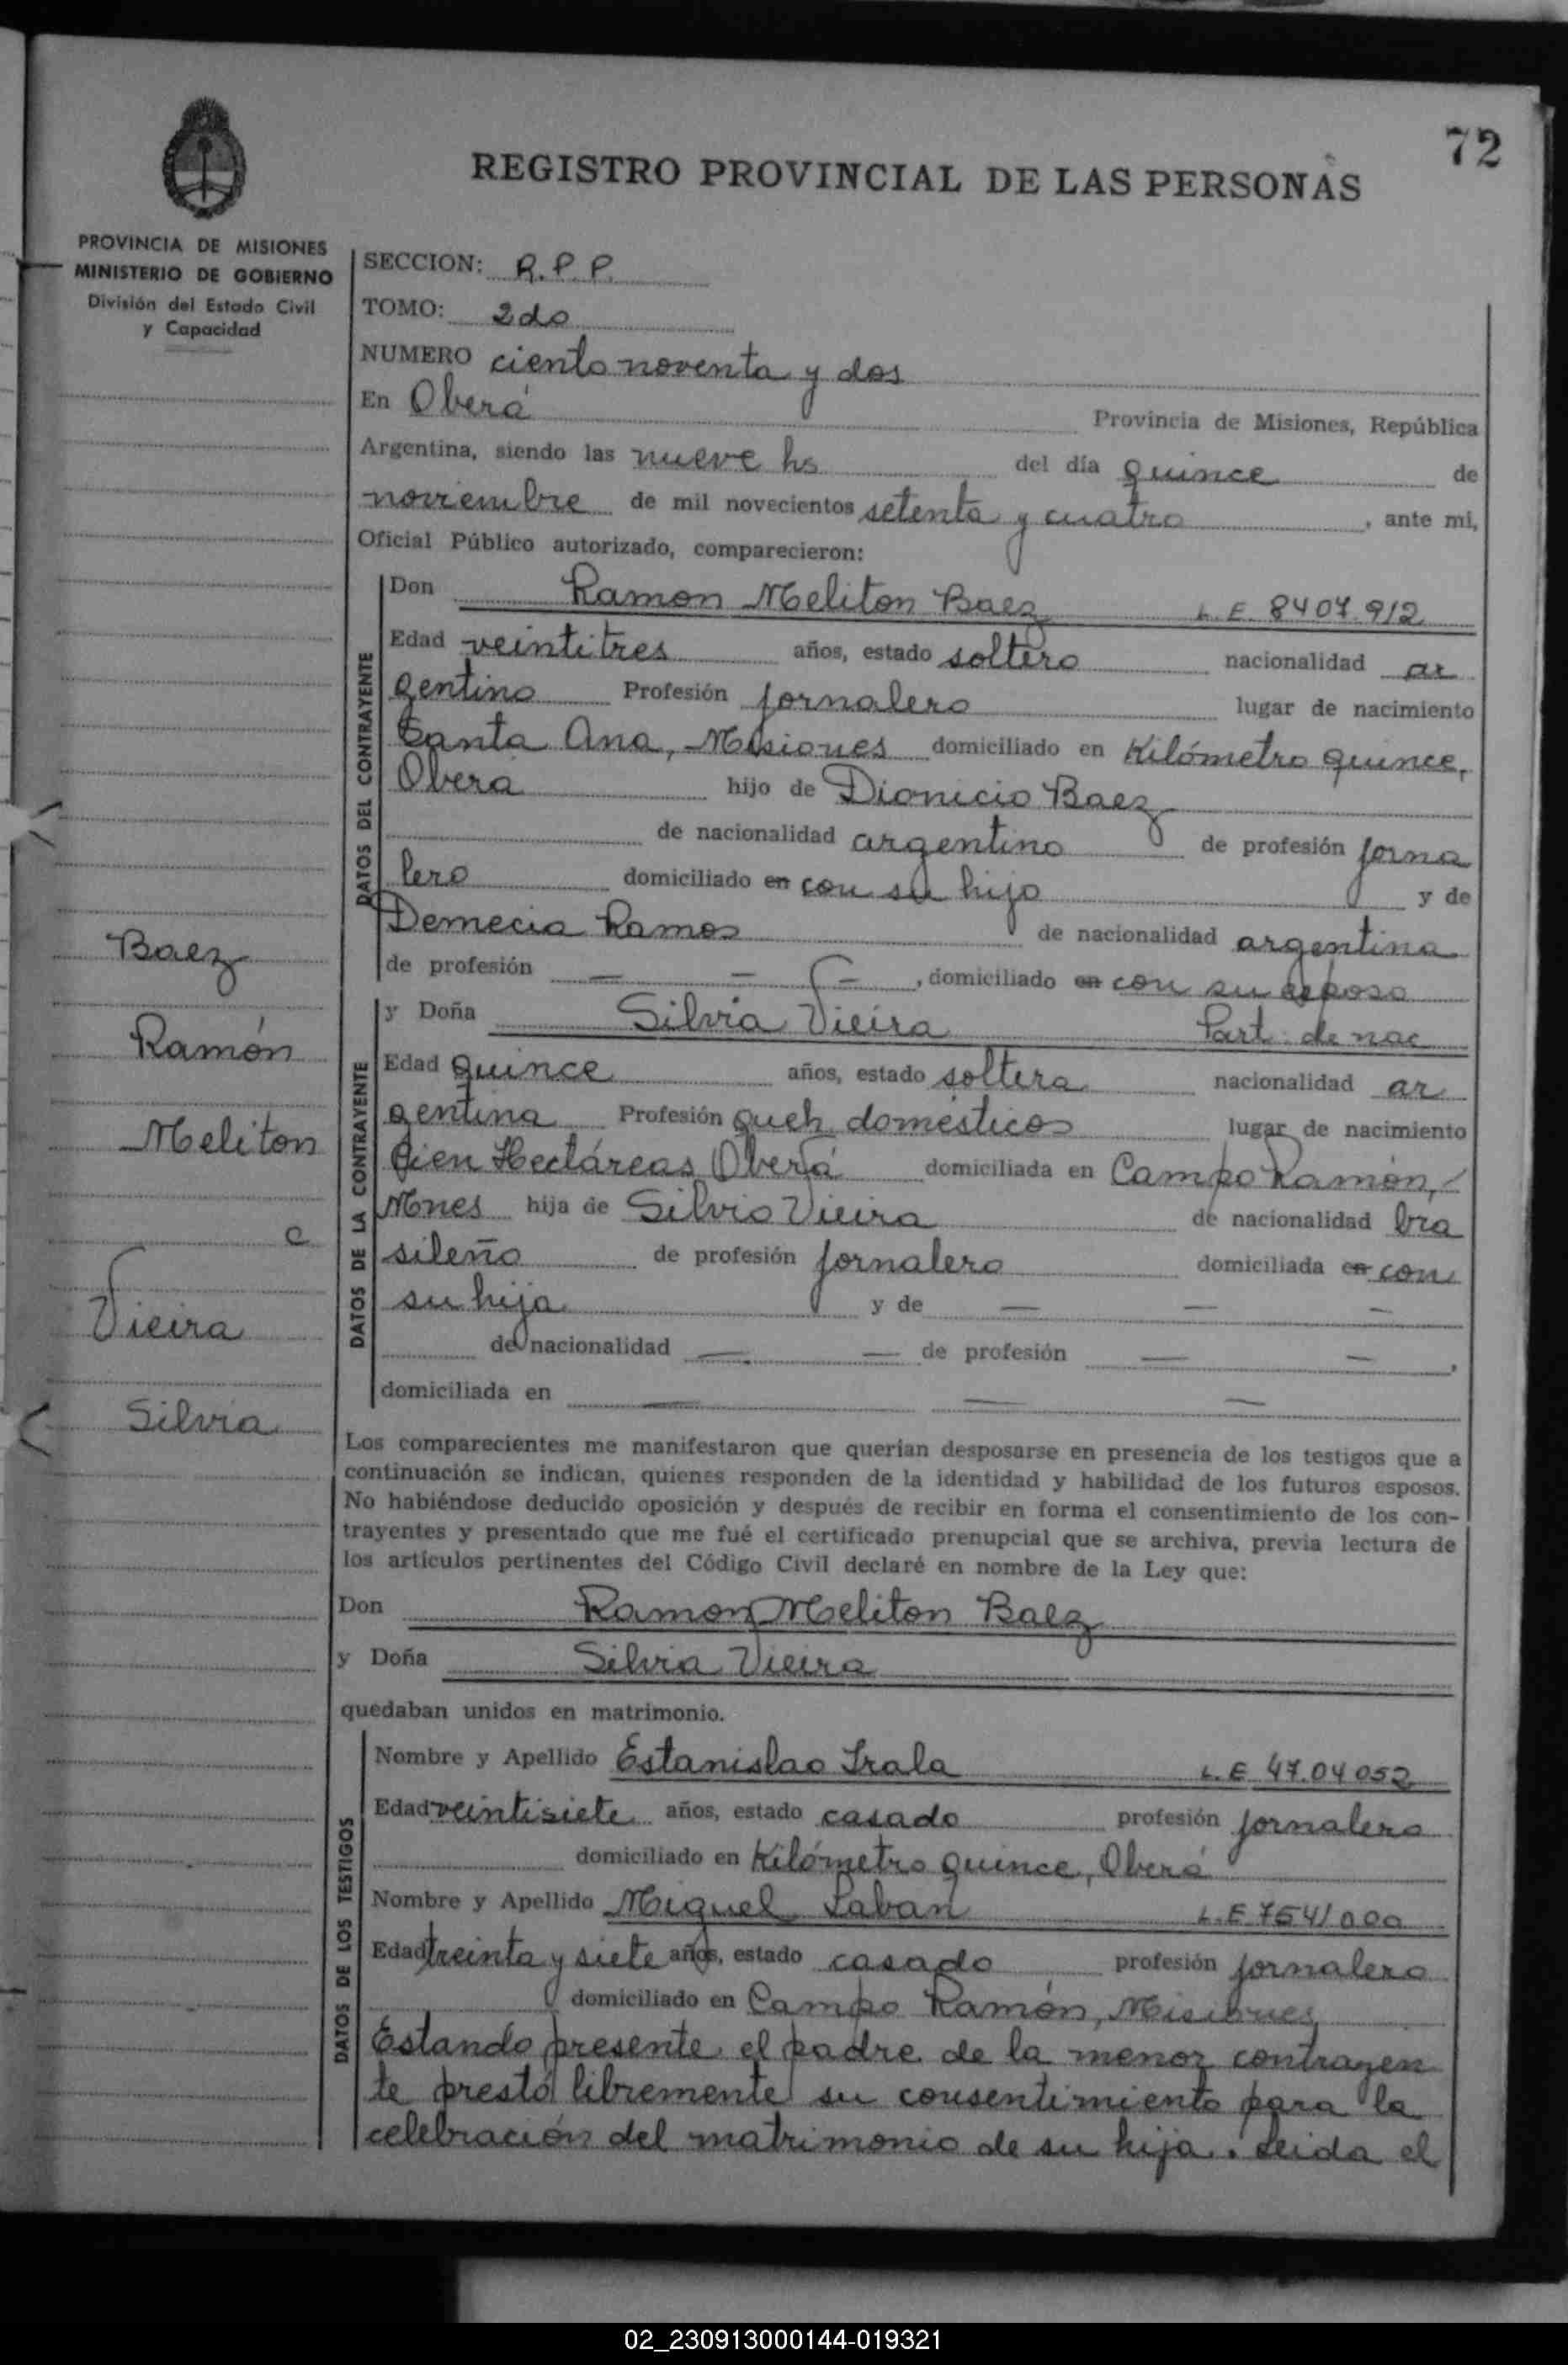 72
REGISTRO PROVINCIAL DE LAS PERSONAS
PROVINCIA DE MISIONES
MINISTERIO DE GOBIERNO
División del Estado Civil
y Capacidad
SECCION: R.P.P.
TOMO: 2do
NUMERO ciento noventa y dos
En Oberá Provincia de Misiones, República
Argentina, siendo las nueve hs del día quince de
noviembre de mil novecientos setenta y cuatro, ante mi,
Oficial Público autorizado, comparecieron:
DATOS DEL CONTRAYENTE
Don Ramon Meliton Baez L.E. 8407.912
Edad veintitres años, estado soltero nacionalidad ar
gentino Profesión jornalero lugar de nacimiento
Santa Ana, Misiones domiciliado en Kilómetro quince,
Oberá hijo de Dionicio Baez
de nacionalidad argentino de profesión jorna
lero domiciliado en con su hijo y de
Demecia Ramos de nacionalidad argentina
de profesión — — —, domiciliado en con su esposo
DATOS DE LA CONTRAYENTE
y Doña Silvia Vieira Part. de nac
Edad quince años, estado soltera nacionalidad ar
gentina Profesión queh. domésticos lugar de nacimiento
Cien Hectáreas Oberá domiciliada en Campo Ramón,
Mnes hija de Silvio Vieira de nacionalidad bra
sileño de profesión jornalero domiciliada en con
su hija y de — — —
de nacionalidad — — de profesión — —,
domiciliada en — — —
Baez
Ramón
Meliton
c
Vieira
Silvia
Los comparecientes me manifestaron que querían desposarse en presencia de los testigos que a
continuación se indican, quienes responden de la identidad y habilidad de los futuros esposos.
No habiéndose deducido oposición y después de recibir en forma el consentimiento de los con-
trayentes y presentado que me fué el certificado prenupcial que se archiva, previa lectura de
los artículos pertinentes del Código Civil declaré en nombre de la Ley que:
Don Ramon Meliton Baez
y Doña Silvia Vieira
quedaban unidos en matrimonio.
DATOS DE LOS TESTIGOS
Nombre y Apellido Estanislao Irala L.E 47.04052
Edad veintisiete años, estado casado profesión jornalero
domiciliado en Kilómetro quince, Oberá
Nombre y Apellido Miguel Laban L.E 7541000
Edad treinta y siete años, estado casado profesión jornalero
domiciliado en Campo Ramón, Misiones
Estando presente el padre de la menor contrayen
te prestó libremente su consentimiento para la
celebración del matrimonio de su hija. Leida el
02_230913000144-019321